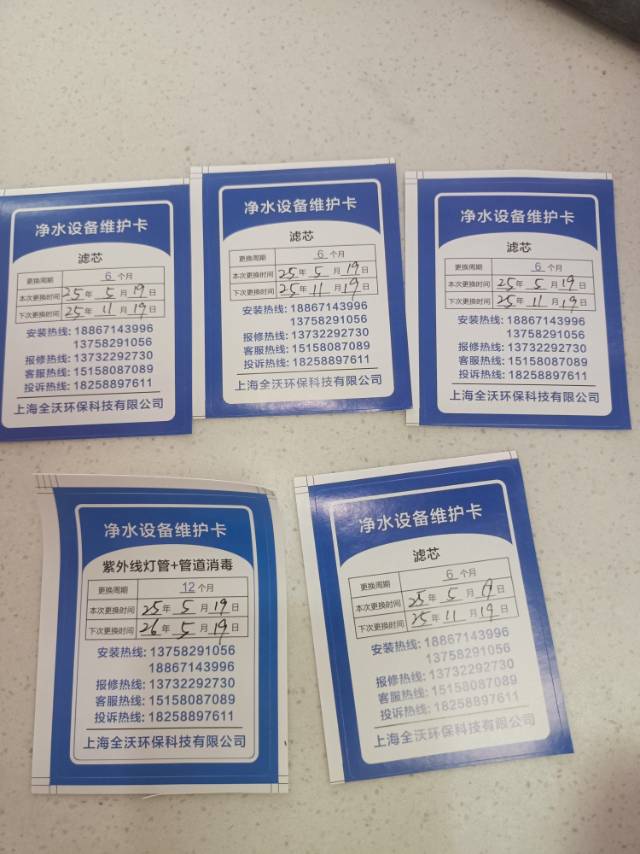 净水设备维护卡
滤芯
更换周期 6 个月
本次更换时间 25 年 5 月 19 日
下次更换时间 25 年 11 月 19 日
安装热线: 18867143996
13758291056
报修热线: 13732292730
客服热线: 15158087089
投诉热线: 18258897611
上海全沃环保科技有限公司
净水设备维护卡
滤芯
更换周期 6 个月
本次更换时间 25 年 5 月 19 日
下次更换时间 25 年 11 月 19 日
安装热线: 18867143996
13758291056
报修热线: 13732292730
客服热线: 15158087089
投诉热线: 18258897611
上海全沃环保科技有限公司
净水设备维护卡
滤芯
更换周期 6 个月
本次更换时间 25 年 5 月 19 日
下次更换时间 25 年 11 月 19 日
安装热线: 18867143996
13758291056
报修热线: 13732292730
客服热线: 15158087089
投诉热线: 18258897611
上海全沃环保科技有限公司
净水设备维护卡
紫外线灯管+管道消毒
更换周期 12 个月
本次更换时间 25 年 5 月 19 日
下次更换时间 26 年 5 月 19 日
安装热线: 13758291056
18867143996
报修热线: 13732292730
客服热线: 15158087089
投诉热线: 18258897611
上海全沃环保科技有限公司
净水设备维护卡
滤芯
更换周期 6 个月
本次更换时间 25 年 5 月 19 日
下次更换时间 25 年 11 月 19 日
安装热线: 18867143996
13758291056
报修热线: 13732292730
客服热线: 15158087089
投诉热线: 18258897611
上海全沃环保科技有限公司